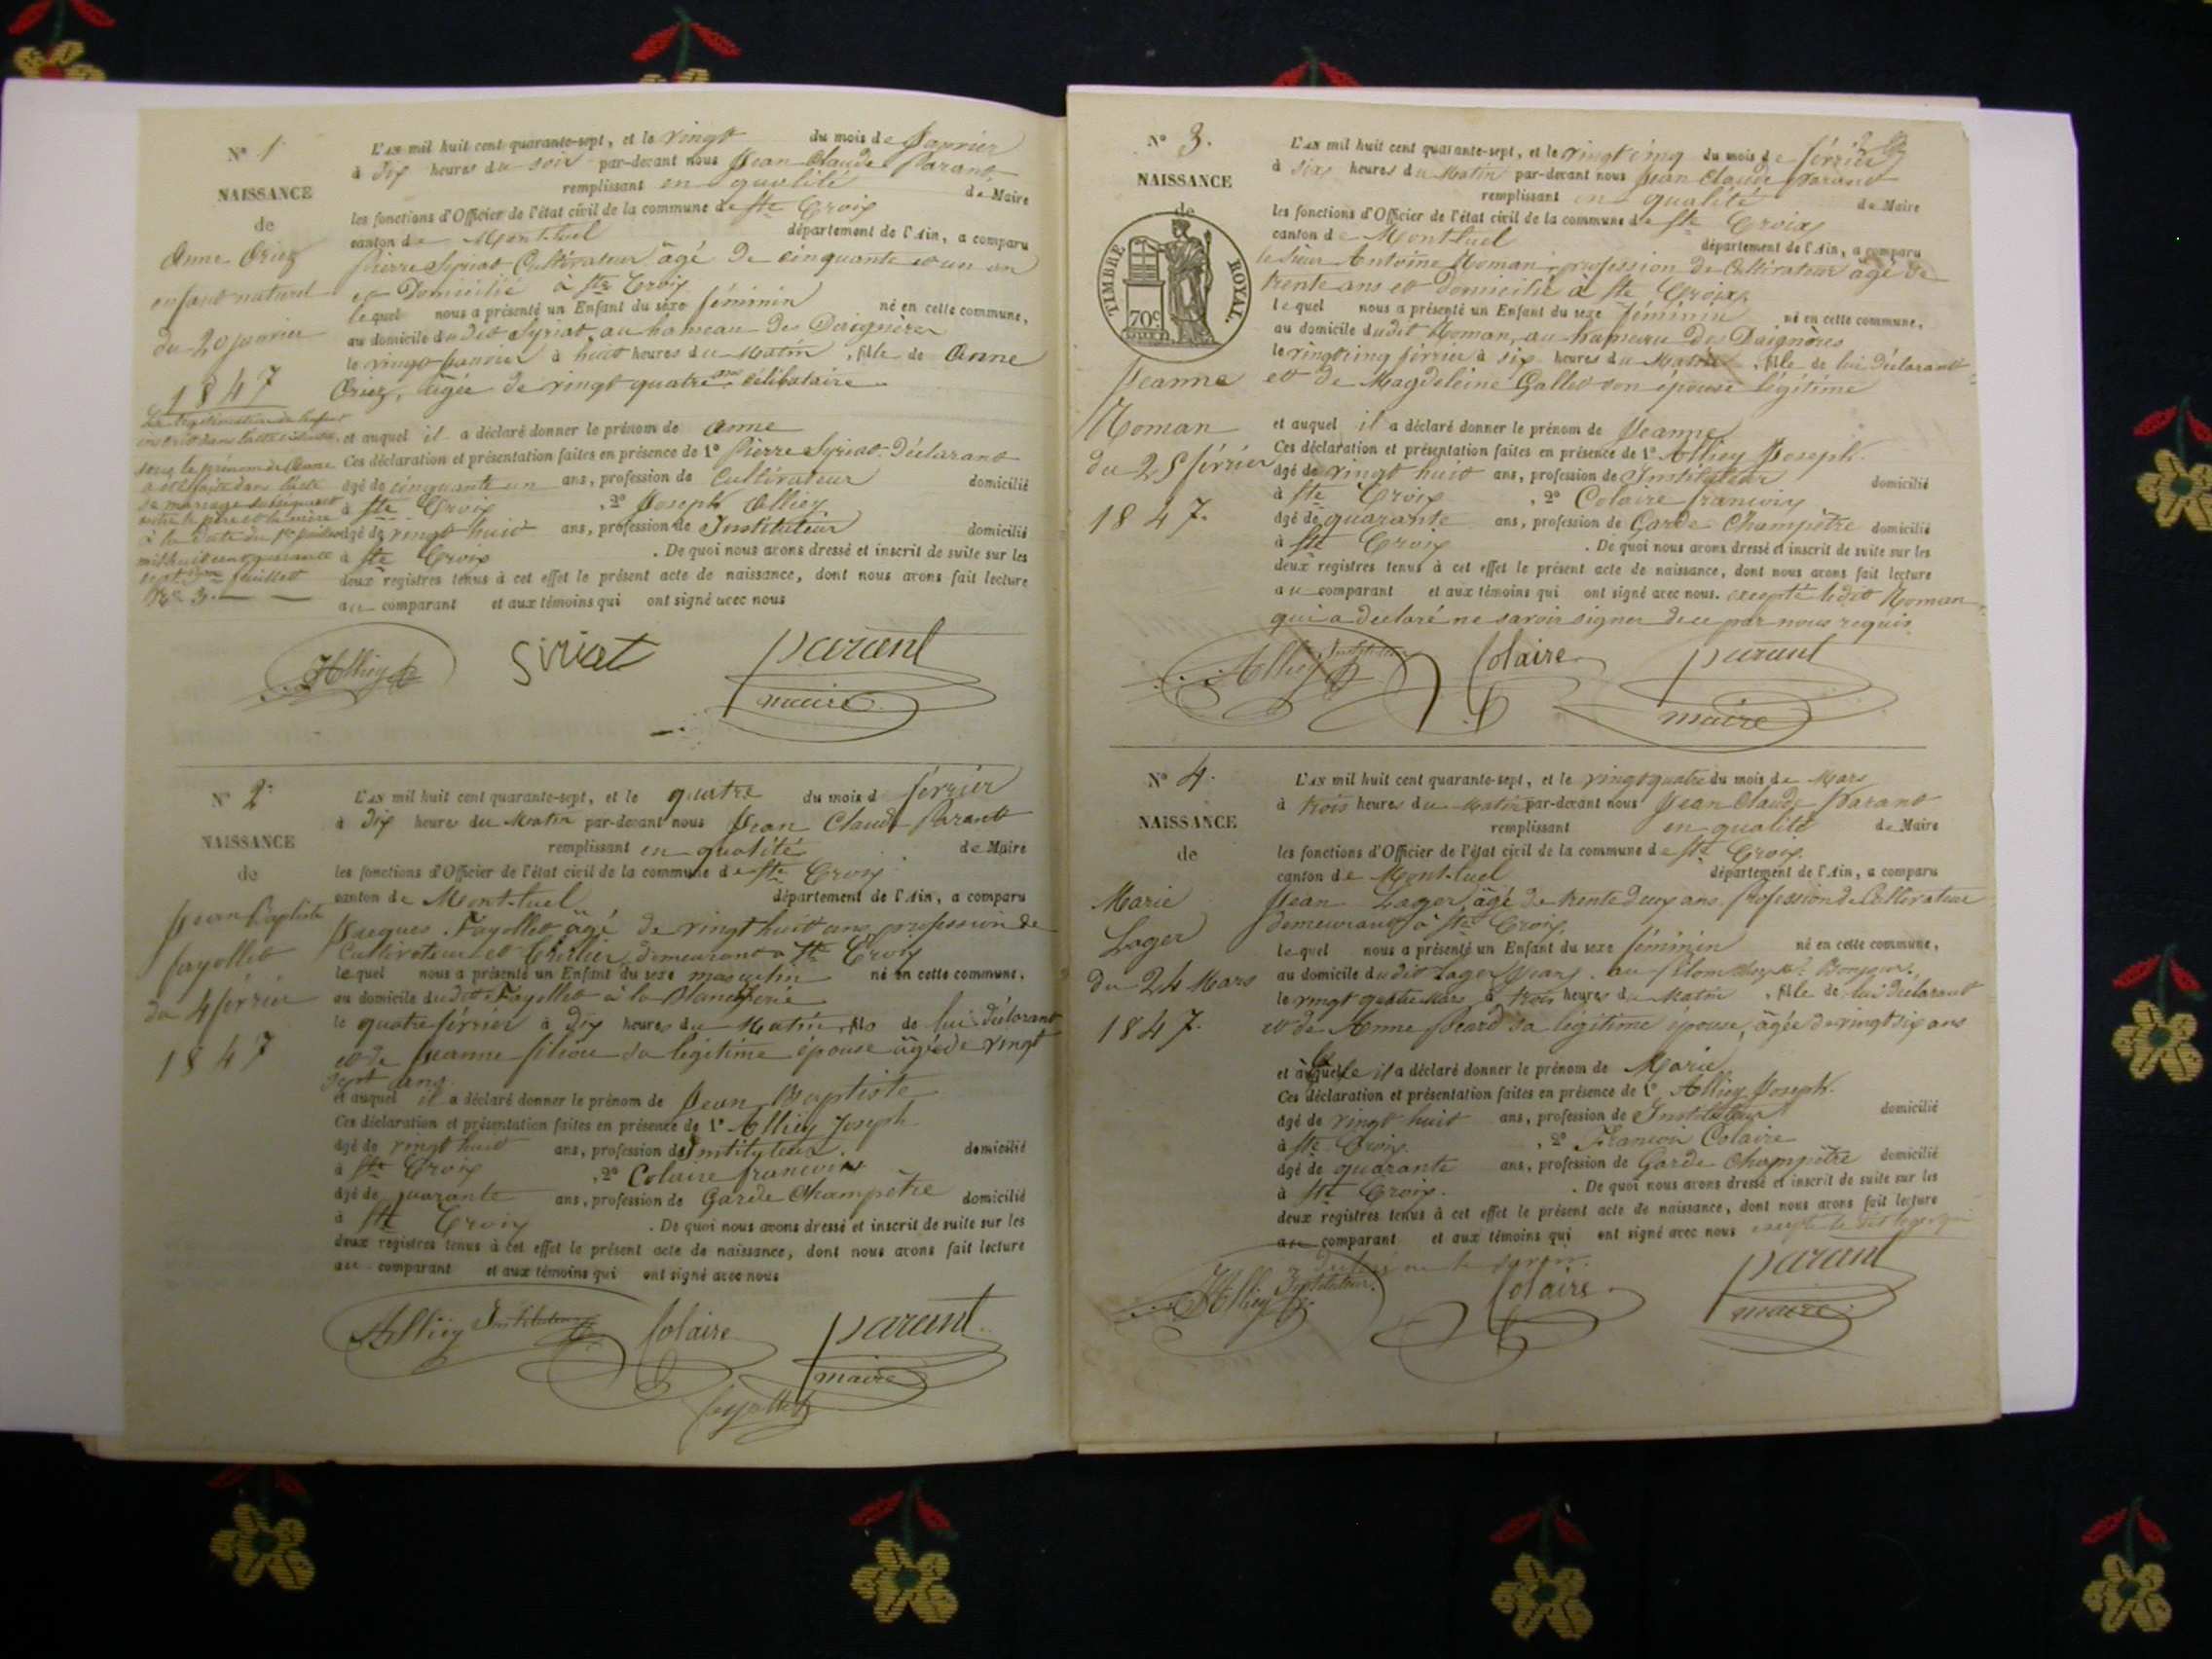 N° 1
NAISSANCE
de
Anne Oriez
enfant naturel
du 20 janvier
1847
La légitimation de l'enfant
inscrit dans l'acte ci-contre
sous le prénom de Anne
a été faite dans l'acte
de mariage subséquent
entre le père et la mère
à la date du 1er juillet
mil huit cent quarante
sept
N° 3.
L'AN mil huit cent quarante-sept, et le vingt du mois de Janvier
à dix heures du soir par-devant nous Jean Claude Parant
remplissant en qualité de Maire
les fonctions d'Officier de l'état civil de la commune de Ste Croix
canton de Montluel département de l'Ain, a comparu
Pierre Syriat Cultivateur âgé de cinquante et un an
et Domicilié à Ste Croix
lequel nous a présenté un Enfant du sexe féminin né en cette commune,
au domicile du dit Syriat, au hameau des Daignères
le vingt janvier à huit heures du Matin, fille de Anne
Oriez, âgée de vingt quatre ans célibataire
et auquel il a déclaré donner le prénom de Anne
Ces déclaration et présentation faites en présence de 1° Pierre Syriat Déclarant
âgé de cinquante un ans, profession de Cultivateur domicilié
à Ste Croix, 2° Joseph Alliey
âgé de vingt huit ans, profession de Instituteur domicilié
à Ste Croix. De quoi nous avons dressé et inscrit de suite sur les
deux registres tenus à cet effet le présent acte de naissance, dont nous avons fait lecture
au comparant et aux témoins qui ont signé avec nous
Alliey Siriat parant
maire
N° 2
NAISSANCE
de
Jean Baptiste
fayollet
du 4 février
1847
L'AN mil huit cent quarante-sept, et le quatre du mois d février
à dix heures du Matin par-devant nous Jean Claude Parant
remplissant en qualité de Maire
les fonctions d'Officier de l'état civil de la commune de Ste Croix
canton de Montluel département de l'Ain, a comparu
Jacques Fayollet âgé de vingt huit ans, profession de
Cultivateur et demeurant à Ste Croix
lequel nous a présenté un Enfant du sexe masculin né en cette commune,
au domicile du dit Fayollet à la Blancherie
le quatre février à dix heures du Matin, fils de lui Déclarant
et de Jeanne filiou sa légitime épouse âgée de vingt
sept ans
et auquel il a déclaré donner le prénom de Jean Baptiste
Ces déclaration et présentation faites en présence de 1° Alliey Joseph
âgé de vingt huit ans, profession de Instituteur. domicilié
à Ste Croix, 2° Colaire francois
âgé de quarante ans, profession de Garde Champêtre domicilié
à Ste Croix. De quoi nous avons dressé et inscrit de suite sur les
deux registres tenus à cet effet le présent acte de naissance, dont nous avons fait lecture
au comparant et aux témoins qui ont signé avec nous
Alliey Instituteur Colaire parant
maire
fayollet
N° 3.
NAISSANCE
de
TIMBRE ROYAL.
70c
Jeanne
Roman
du 25 février
1847.
L'AN mil huit cent quarante-sept, et le vingt cinq du mois de février
à six heures du Matin par-devant nous Jean Claude Parant
remplissant en qualité de Maire
les fonctions d'Officier de l'état civil de la commune de Ste Croix
canton de Montluel département de l'Ain, a comparu
le sieur Antoine Roman, profession de Cultivateur âgé de
trente ans et domicilié à Ste Croix
lequel nous a présenté un Enfant du sexe féminin né en cette commune,
au domicile du dit Roman, au hameau des Daignères
le vingt cinq février à six heures du Matin, fille de lui Déclarant
et de Magdeleine Gallet son épouse légitime
et auquel il a déclaré donner le prénom de Jeanne
Ces déclaration et présentation faites en présence de 1° Alliey Joseph.
âgé de vingt huit ans, profession de Instituteur domicilié
à Ste Croix, 2° Colaire francois
âgé de quarante ans, profession de Garde Champêtre domicilié
à Ste Croix. De quoi nous avons dressé et inscrit de suite sur les
deux registres tenus à cet effet le présent acte de naissance, dont nous avons fait lecture
au comparant et aux témoins qui ont signé avec nous. excepté le dit Roman
qui a déclaré ne savoir signer de ce par nous requis
Alliey Instituteur Colaire parant
maire
N° 4.
NAISSANCE
de
Marie
Lager
du 24 Mars
1847.
L'AN mil huit cent quarante-sept, et le vingt quatre du mois de Mars
à trois heures du Matin par-devant nous Jean Claude Parant
remplissant en qualité de Maire
les fonctions d'Officier de l'état civil de la commune de Ste Croix
canton de Montluel département de l'Ain, a comparu
Jean Lager âgé de trente deux ans, Profession de Cultivateur
demeurant à Ste Croix
lequel nous a présenté un Enfant du sexe féminin né en cette commune,
au domicile du dit Lager Jean, au
le vingt quatre Mars à trois heures du Matin, fille de lui Déclarant
et de Anne Picard sa légitime épouse, âgée de vingt six ans
et à laquelle il a déclaré donner le prénom de Marie
Ces déclaration et présentation faites en présence de 1° Alliey Joseph.
âgé de vingt huit ans, profession de Instituteur domicilié
à Ste Croix, 2° Francois Colaire
âgé de quarante ans, profession de Garde Champêtre domicilié
à Ste Croix. De quoi nous avons dressé et inscrit de suite sur les
deux registres tenus à cet effet le présent acte de naissance, dont nous avons fait lecture
au comparant et aux témoins qui ont signé avec nous excepté le dit lager qui
déclaré ne le savoir.
Alliey Instituteur. Colaire parant
maire